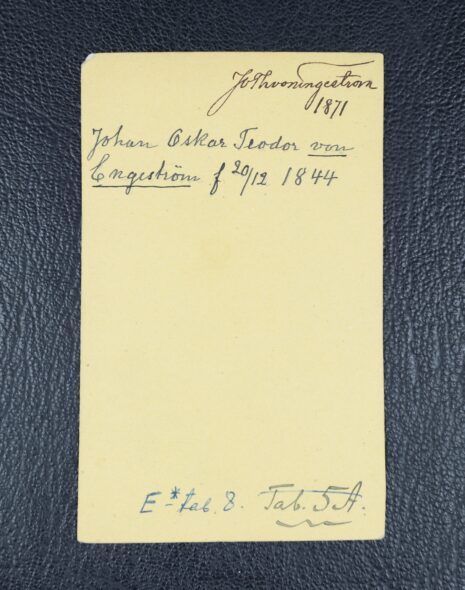 JOThvonEngeström
1871
Johan Oskar Teodor von
Engeström f 20/12 1844
E-*tab. 8. Tab. 5A.